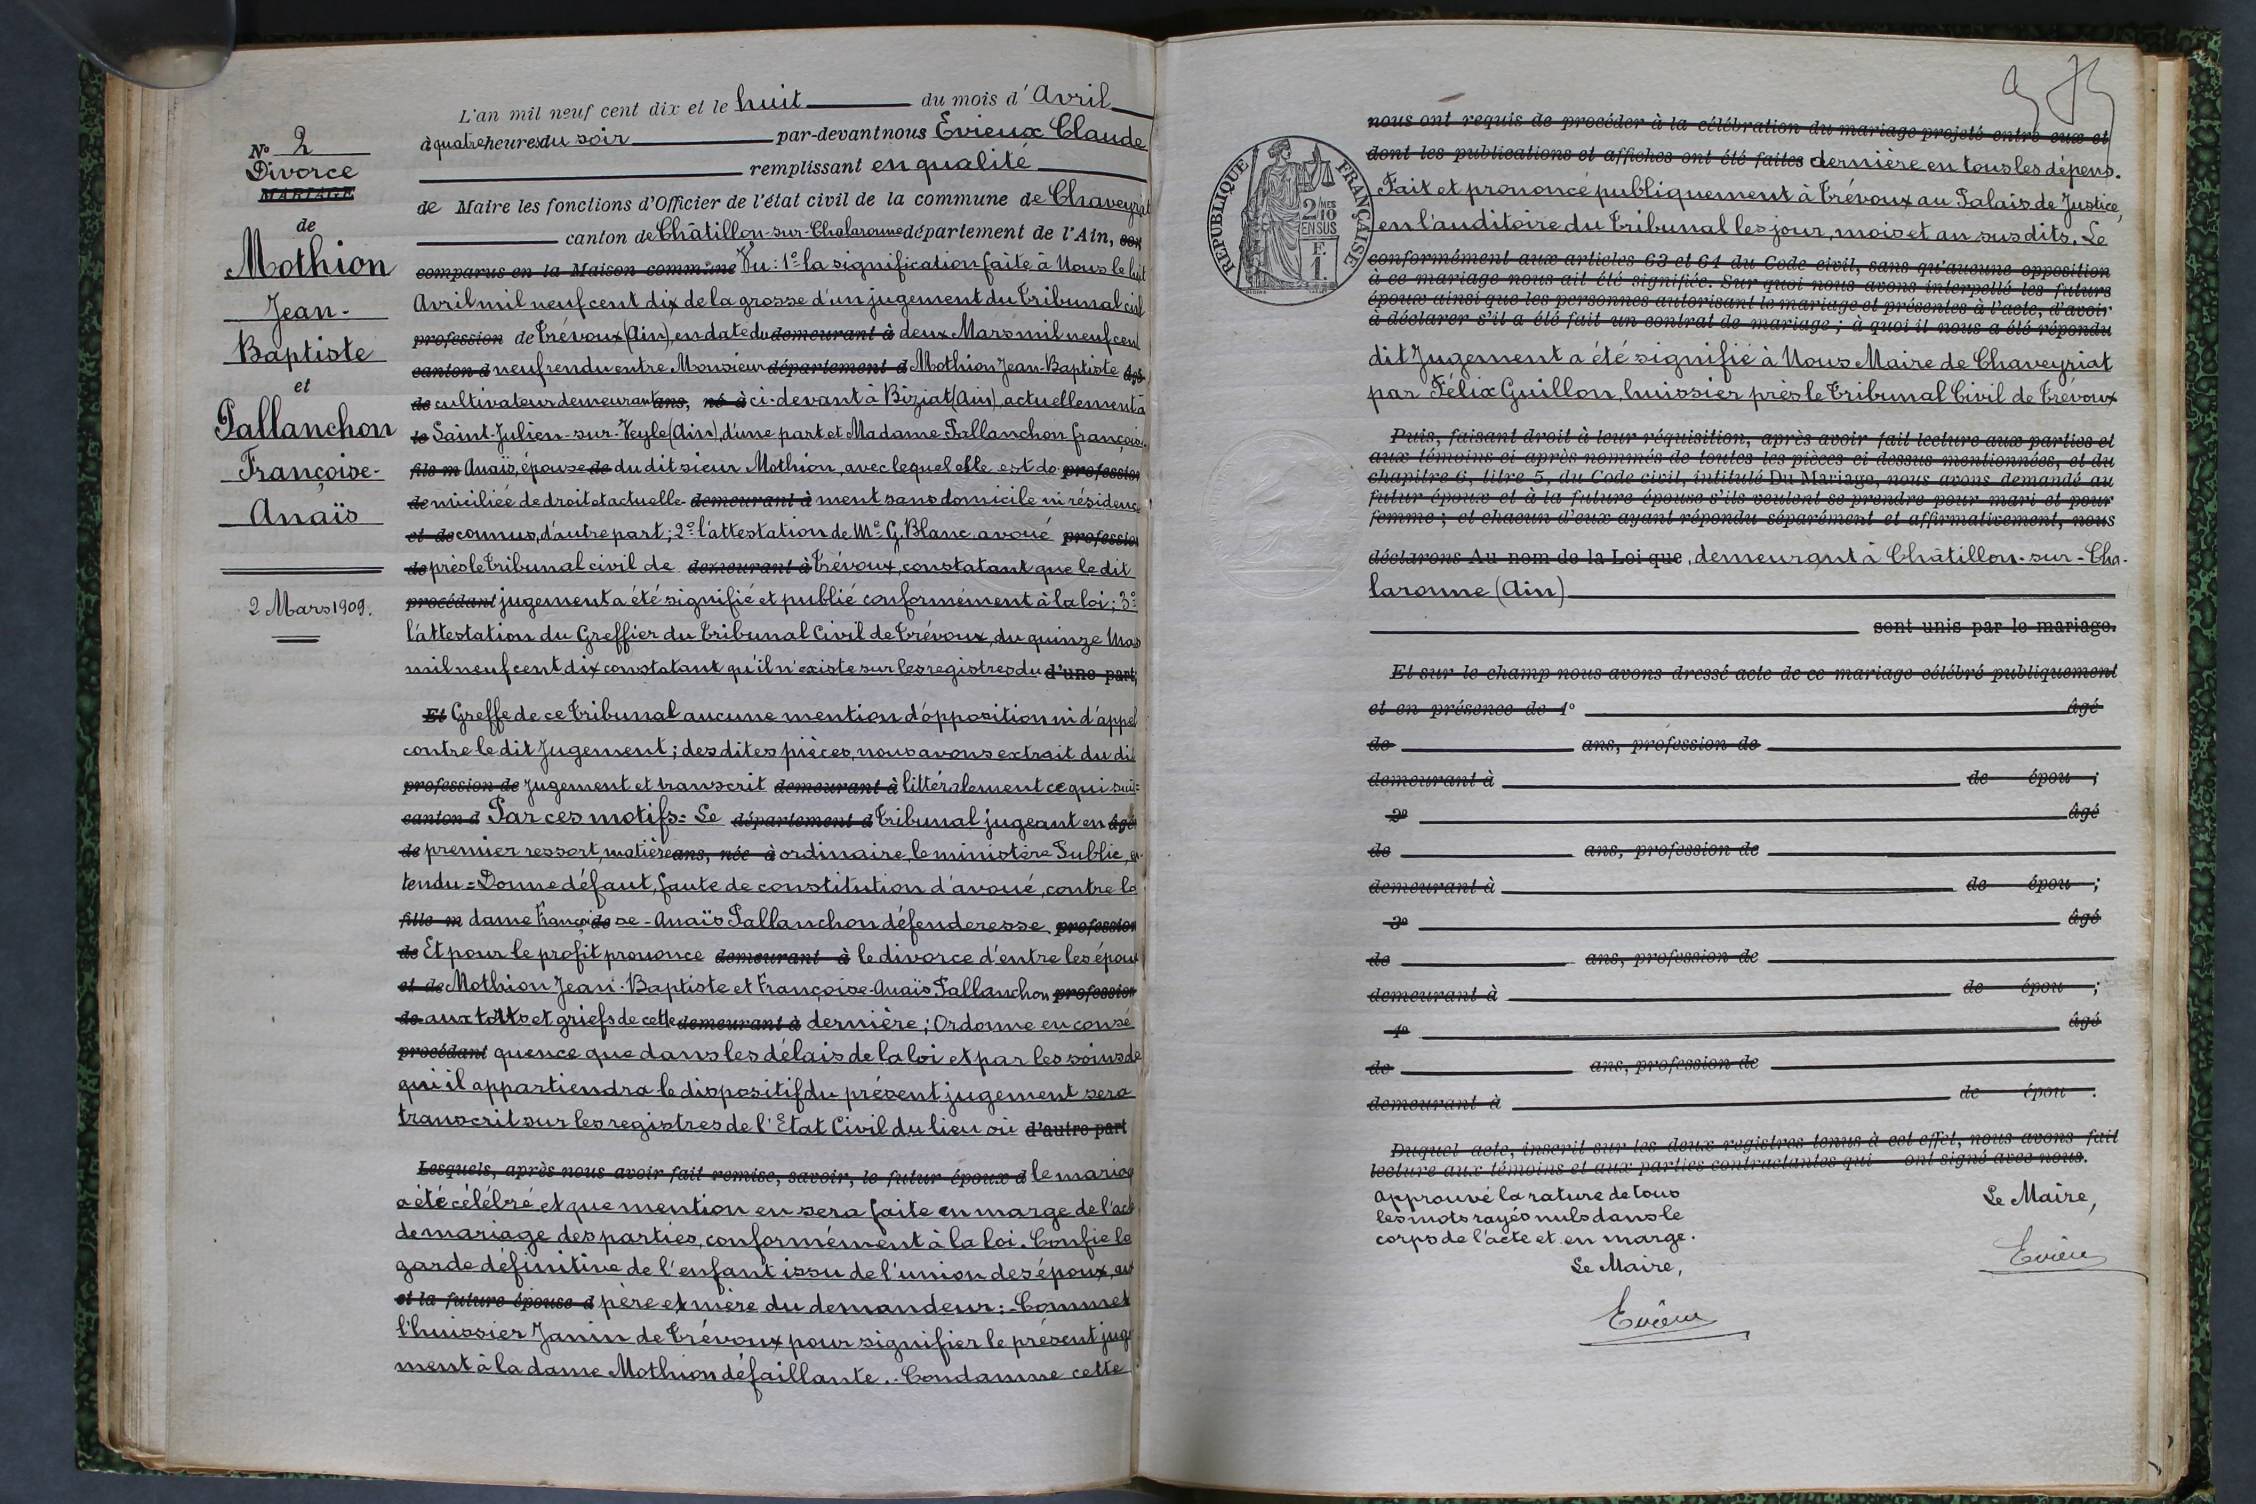 L'an mil neuf cent dix et le huit du mois d'Avril
à quatre heures du soir par-devant nous Evieux Claude
remplissant en qualité
de Maire les fonctions d'Officier de l'état civil de la commune de Chaveyriat
canton de Châtillon-sur-Chalaronne département de l'Ain, con
comparus en la Maison commune Vu: 1º la signification faite à Nous le huit
Avril mil neuf cent dix de la grosse d'un jugement du Tribunal civil
profession de Trévoux (Ain), en date du demeurant à deux Mars mil neuf cent
canton d neuf rendu entre Monsieur département d Mothion Jean-Baptiste âgé
de cultivateur demeurant ans, né à ci-devant à Biziat (Ain), actuellement à
le Saint-Julien-sur-Veyle (Ain), d'une part et Madame Pallanchon françoise
fils m Anaïs, épouse de du dit sieur Mothion, avec lequel elle est do profession
de miciliée de droit et actuelle- demeurant à ment sans domicile ni résidence
et de connus, d'autre part; 2º l'attestation de Mº G. Blanc avoué profession
de près le Tribunal civil de demeurant à Trévoux, constatant que le dit
procédant jugement a été signifié et publié conformément à la loi; 3º
l'attestation du Greffier du Tribunal Civil de Trévoux, du quinze Mars
mil neuf cent dix constatant qu'il n'existe sur les registres du d'une part,
Et Greffe de ce Tribunal aucune mention d'opposition ni d'appel
contre le dit Jugement; des dites pièces, nous avons extrait du dit
profession de Jugement et transcrit demeurant à littéralement ce qui suit:
canton d Par ces motifs: Le département d Tribunal jugeant en âgé
de premier ressort, matière ans, née à ordinaire, le ministère Public, en-
tendu = Donne défaut, faute de constitution d'avoué, contre la
fille m dame Françoi de se-Anaïs Pallanchon défenderesse, profession
de Et pour le profit prononce demeurant à le divorce d'entre les époux
et de Mothion Jean-Baptiste et Françoise-Anaïs Pallanchon profession
de aux torts et griefs de cette demeurant à dernière; Ordonne en consé
procédant quence que dans les délais de la loi et par les soins de
qui il appartiendra le dispositif du présent jugement sera
transcrit sur les registres de l'Etat Civil du lieu où d'autre part
Lesquels, après nous avoir fait remise, savoir, le futur époux d le mariage
a été célébré et que mention en sera faite en marge de l'acte
de mariage des parties, conformément à la loi. Confie la
garde définitive de l'enfant issu de l'union des époux, aux
et la future épouse d père et mère du demandeur: - Commet
l'huissier Janin de Trévoux pour signifier le présent juge
ment à la dame Mothion défaillante. - Condamne cette
Nº 2
Divorce
MARIAGE
de
Mothion
Jean-
Baptiste
et
Pallanchon
Françoise-
Anaïs
2 Mars 1909.
nous ont requis de procéder à la célébration du mariage projeté entre eux et
dont les publications et affiches ont été faites dernière en tous les dépens.
Fait et prononcé publiquement à Trévoux au Palais de Justice,
en l'auditoire du Tribunal les jour, mois et an susdits. Le
conformément aux articles 63 et 64 du Code civil, sans qu'aucune opposition
à ce mariage nous ait été signifiée. Sur quoi nous avons interpellé les futurs
époux ainsi que les personnes autorisant le mariage et présentes à l'acte, d'avoir
à déclarer s'il a été fait un contrat de mariage; à quoi il nous a été répondu
dit Jugement a été signifié à Nous Maire de Chaveyriat
par Félix Guillon, huissier près le Tribunal Civil de Trévoux
Puis, faisant droit à leur réquisition, après avoir fait lecture aux parties et
aux témoins ci après nommés de toutes les pièces ci dessus mentionnées, et du
chapitre 6, titre 5, du Code civil, intitulé Du Mariage, nous avons demandé au
futur époux et à la future épouse s'ils veulent se prendre pour mari et pour
femme; et chacun d'eux ayant répondu séparément et affirmativement, nous
déclarons Au nom de la Loi que, demeurant à Châtillon-sur-Cha-
laronne (Ain)
sont unis par le mariage.
Et sur le champ nous avons dressé acte de ce mariage célébré publiquement
et en présence de 1º âgé
de ans, profession de
demeurant à de épou ;
2º âgé
de ans, profession de
demeurant à de épou ;
3º âgé
de ans, profession de
demeurant à de épou ;
4º âgé
de ans, profession de
demeurant à de épou .
Duquel acte, inscrit sur les deux registres tenus à cet effet, nous avons fait
lecture aux témoins et aux parties contractantes qui ont signé avec nous.
Approuvé la rature de tous
les mots rayés nuls dans le
corps de l'acte et en marge.
Le Maire,
Evieux
Le Maire,
Evieux
RÉPUBLIQUE FRANÇAISE
2/MES
10
EN SUS
F.
1.